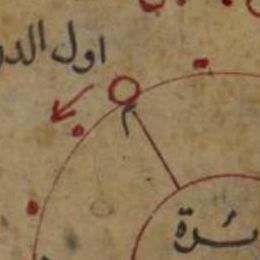 اول الدو
م
سُرة